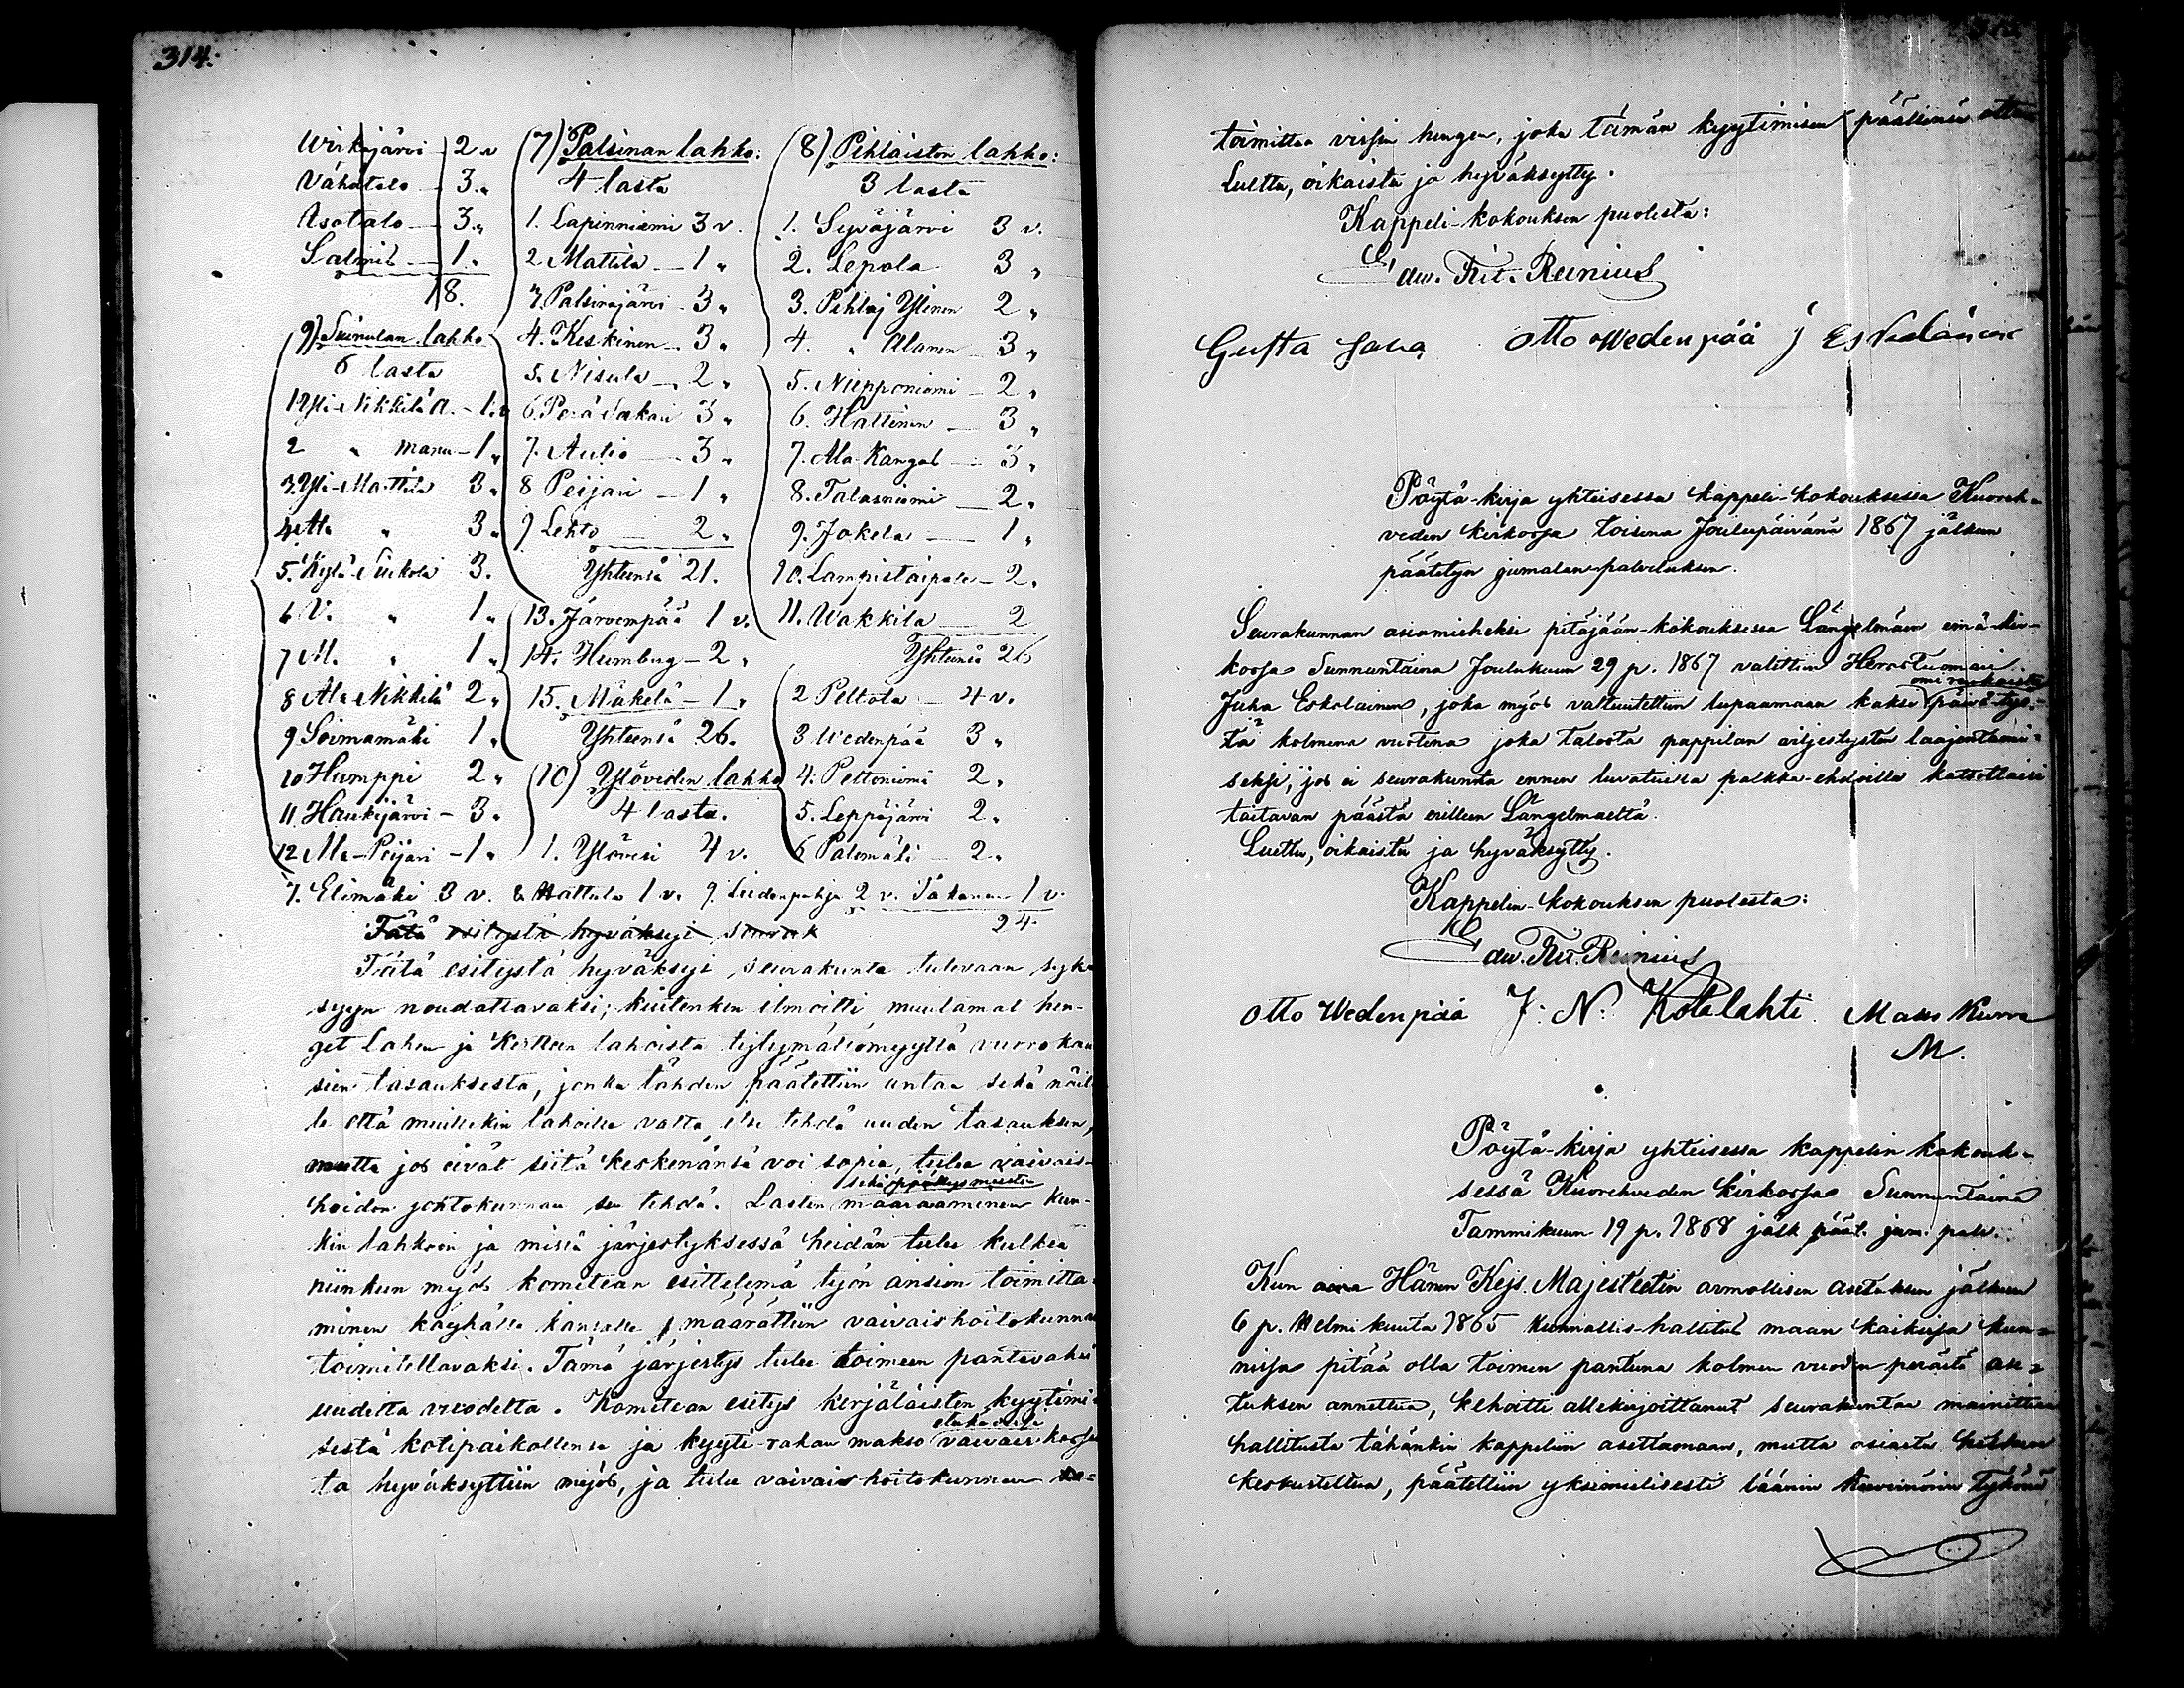 314.
Wirkajärvi 2 v
Vähätalo — 3 "
Isotalo — 3 "
Salmis — 1 "
18.
9) Suinulan lahko
6 lasta
1 Yli-Nikkilä A. - 1 v
2 " Manu - 1 "
3. Yli-Mattila 3 "
4 Ala " 3 "
5. Kylä-Siikola 3.
6 V. " 1 "
7 M. " 1 "
8 Ala Nikkilä 2 "
9 Soimamäki 1 "
10 Humppi 2 "
11. Haukijärvi - 3 "
12 Ala-Peijari - 1 "
7) Palsinan lahko:
4 lasta
1. Lapinniemi 3 v.
2 Mattila — 1 "
3. Palsinajärvi - 3 "
4. Keskinen - 3 "
5. Nisula — 2 "
6. Perä Sakari 3 "
7. Aulio — 3 "
8 Peijari — 1 "
9 Lehto — 2 "
Yhteensä 21.
13. Järvenpää 1 v.
14. Humbug - 2 "
15. Mäkelä - 1 "
Yhteensä 26.
10) Ylöveden lahko
4 lasta.
1. Ylövesi 4 v.
8) Pihlaiston lahko:
3 lasta
1. Syväjärvi 3 v.
2. Lepola 3 "
3. Pihlaj Ylinen 2 "
4. " Alanen 3 "
5. Niepponiemi — 2 "
6. Hallinen — 3 "
7. Ala-Kangas — 3 "
8. Talasniemi — 2 "
9. Jokela — 1 "
10. Lampistaipale — 2 "
11. Wakkila — 2
Yhteensä 26
2 Peltola — 4 v.
3 Wedenpää 3 "
4. Peltoniemi 2 "
5. Leppäjärvi 2 "
6 Palomäki — 2 "
7. Elimäki 3 v. 8 Hattula 1 v. 9. Liedenpohja 2 v. Takanen 1 v.
24.
Tätä esitystä hyväksyi seurak
Tätä esitystä hyväksyi seurakunta tulevaan syk-
syyn noudattavaksi; kuitenkin ilmoitti muutamat hen-
get Lahen ja Kertteen lahoista tytymättömyyttä vuorokau
sien tasauksesta, jonka tähden päätettiin antaa sekä näil
le että muillekin lahoille valta itse tehdä uuden tasauksen,
mutta jos eivät siitä keskenänsä voi sopia, tulee vaivais-
hoidon johtokunnan sen tehdä. Lasten määrääminen kun-
kin lahkoon ja missä järjestyksessä heidän tulee kulkea
niinkuin myös komitean esittelemä työn ansion toimitta-
minen käyhälle kansalle määrättiin vaivaishoitokunnan
toimitettavaksi. Tämä järjestys tulee toimeen pantavaksi
uudelta vuodelta. Komitean esitys kerjäläisten kyytimi-
sestä kotipaikallensa ja kyyti-rahan makso vaivais kassa
ta hyväksyttiin myös, ja tulee vaivaishoitokunnan
toimittaa vissin hengen, joka tämän kyytimisen päällensä ottaa
Luettu, oikaistu ja hyväksytty.
Kappeli-kokouksen puolesta:
Edw. Fr. Reinius
Gusta Otto Wedenpää J Eskolainen
Pöytä-kirja yhteisessä kappeli-kokouksessa Kuoreh-
veden kirkossa toisena Joulupäivänä 1867 jälkeen
päätetyn jumalan-palveluksen.
Seurakunnan asiamieheksi pitäjään-kokouksessa Längelmäen emä-kir-
kossa Sunnuntaina Joulukuun 29 p. 1867 valittiin Herastuomari
omi ruokaista
Juha Eskolainen, joka myös valtuutettiin lupaamaan kaksi päivä-työ-
tä kolmena vuotena joka talosta pappilan viljestysten laajentami-
seksi, jos ei seurakunta ennen luvatuissa palkka-ehdoilla katsottaisi
taitavan päästä erilleen Längelmäeltä.
Luettu, oikaistu ja hyväksytty.
Kappelin-kokouksen puolesta:
Edw. Fr. Reinius
Otto Wedenpää J. N. Kotalahti Maus Kurra
M.
Pöytä-kirja yhteisessä kappelin kokouk-
sessä Kuorehveden kirkossa Sunnuntaina
Tammikuun 19 p. 1868 jälk päät. jum. palv.
Kun Hänen Kejs. Majesteetin armollisen asetuksen jälkeen
6 p. Helmikuuta 1865 kunnallis-hallitus maan kaikissa kun-
nissa pitää olla toimeen pantuna kolmen vuoden perästä ase-
tuksen annettua, kehoitti allekirjoittanut seurakuntaa mainittua
hallitusta tähänkin kappeliin asettamaan, mutta asiasta
keskusteltua, päätettiin yksimielisesti läänin Kuvernöörin tykönä